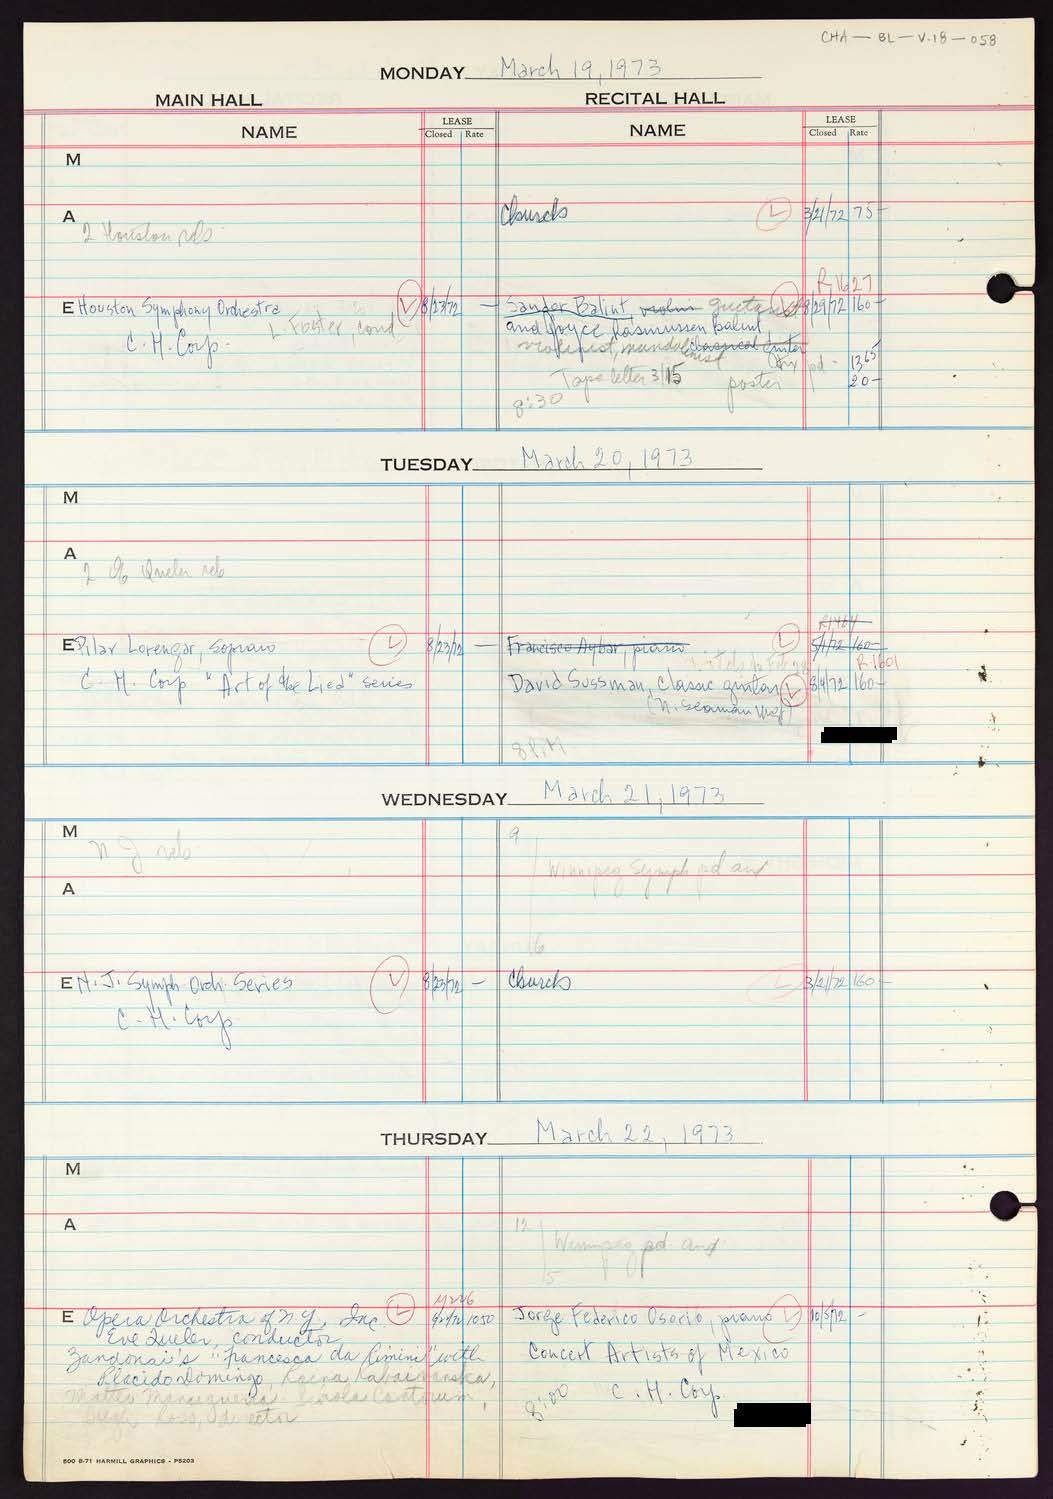 CHA — BL — V.18 — 058
MONDAY March 19, 1973
MAIN HALL RECITAL HALL
NAME LEASE Closed Rate NAME LEASE Closed Rate
M
A Church L 3/21/72 75-
2 Houston reb
R-1627
E Houston Symphony Orchestra 8/23/72 — Sandor Balint, violin 8/29/72 160-
L. Foster, cond and Joyce Rasmussen Balint,
C. H. Corp. violinist, mandolinist classical guitar
pd - 13 65
Tape letter 3/15 poster 20-
8:30
TUESDAY March 20, 1973
M
A
2 Queler reb
R1464
E Pilar Lorengar, soprano L 8/23/72 — Francisco Aybar, piano L 5/1/72 160-
R-1601
C. H. Corp "Art of the Lied" series David Sussman, classic guitar 8/4/72 160-
(N. Seaman Mgt)
8 P.M.
WEDNESDAY March 21, 1973
M 9
N J reb
Winnipeg Symph pd aud
A
6
E N. J. Symph Orch. Series 8/23/72 — Church L 3/21/72 160-
C. H. Corp
THURSDAY March 22, 1973
M
A 12
Winnipeg pd aud
5
E Opera Orchestra of N.Y., Inc. L 1050 Jorge Federico Osorio, piano L 10/5/72 -
Eve Queler, conductor
Zandonai's "Francesca da Rimini" with Concert Artists of Mexico
Placido Domingo, Raina Kabaivanska,
8:00 C. H. Corp.
Matteo Manuguerra Schola Cantorum,
Hugh Ross, director
500 8-71 HARMILL GRAPHICS - P5203